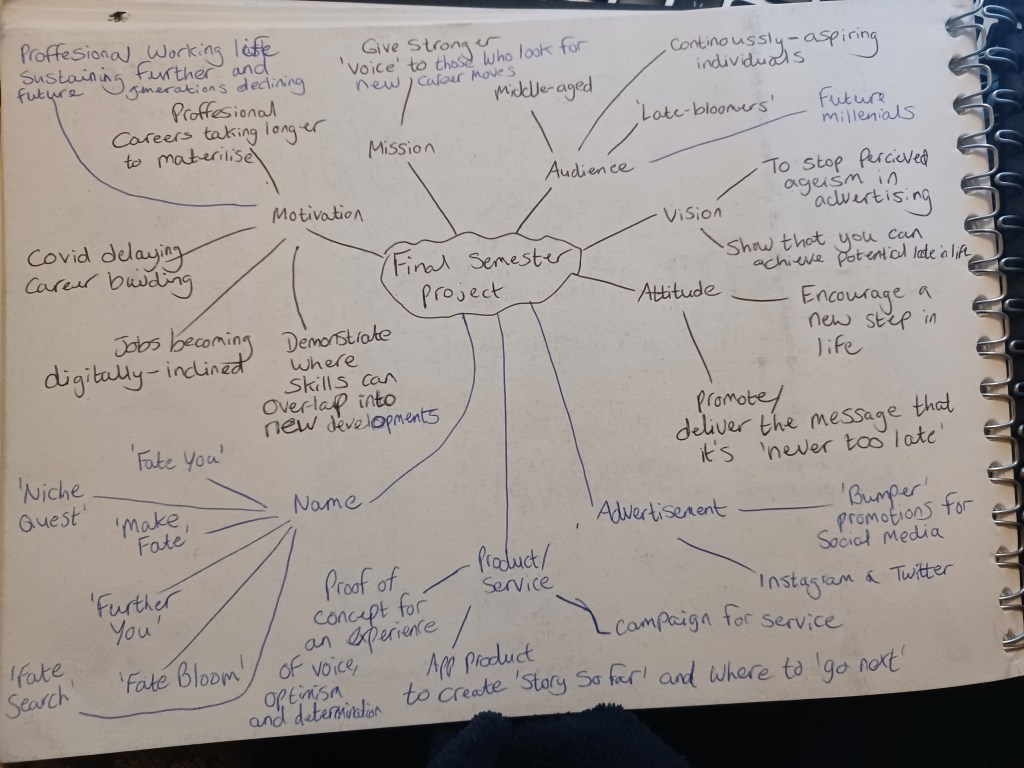 Proffesional Working life
Sustaining further and
future generations declining
Proffesional
Careers taking longer
to materilise
Motivation
Covid delaying
Career building
Jobs becoming
digitally-inclined
Demonstrate
where
skills can
overlap into
new developments
Give stronger
'voice' to those who look for
new career moves
Mission
Middle-aged
Continoussly-aspiring
individuals
'Late-bloomers'
Future
millenials
Audience
Vision
To stop percieved
ageism in
advertising
Show that you can
achieve potential late in life
Final Semester
project
Attitude
Encourage a
new step in
life
promote/
deliver the message that
it's 'never too late'
Name
'Fate You'
'Niche
Quest'
'Make
Fate'
'Further
You'
'Fate
Search'
'Fate Bloom'
Product/
Service
Proof of
concept for
an experience
of voice,
optimism
and determination
App product
to create 'Story So far' and where to 'go next'
campaign for service
Advertisement
'Bumper'
promotions for
Social Media
Instagram & Twitter